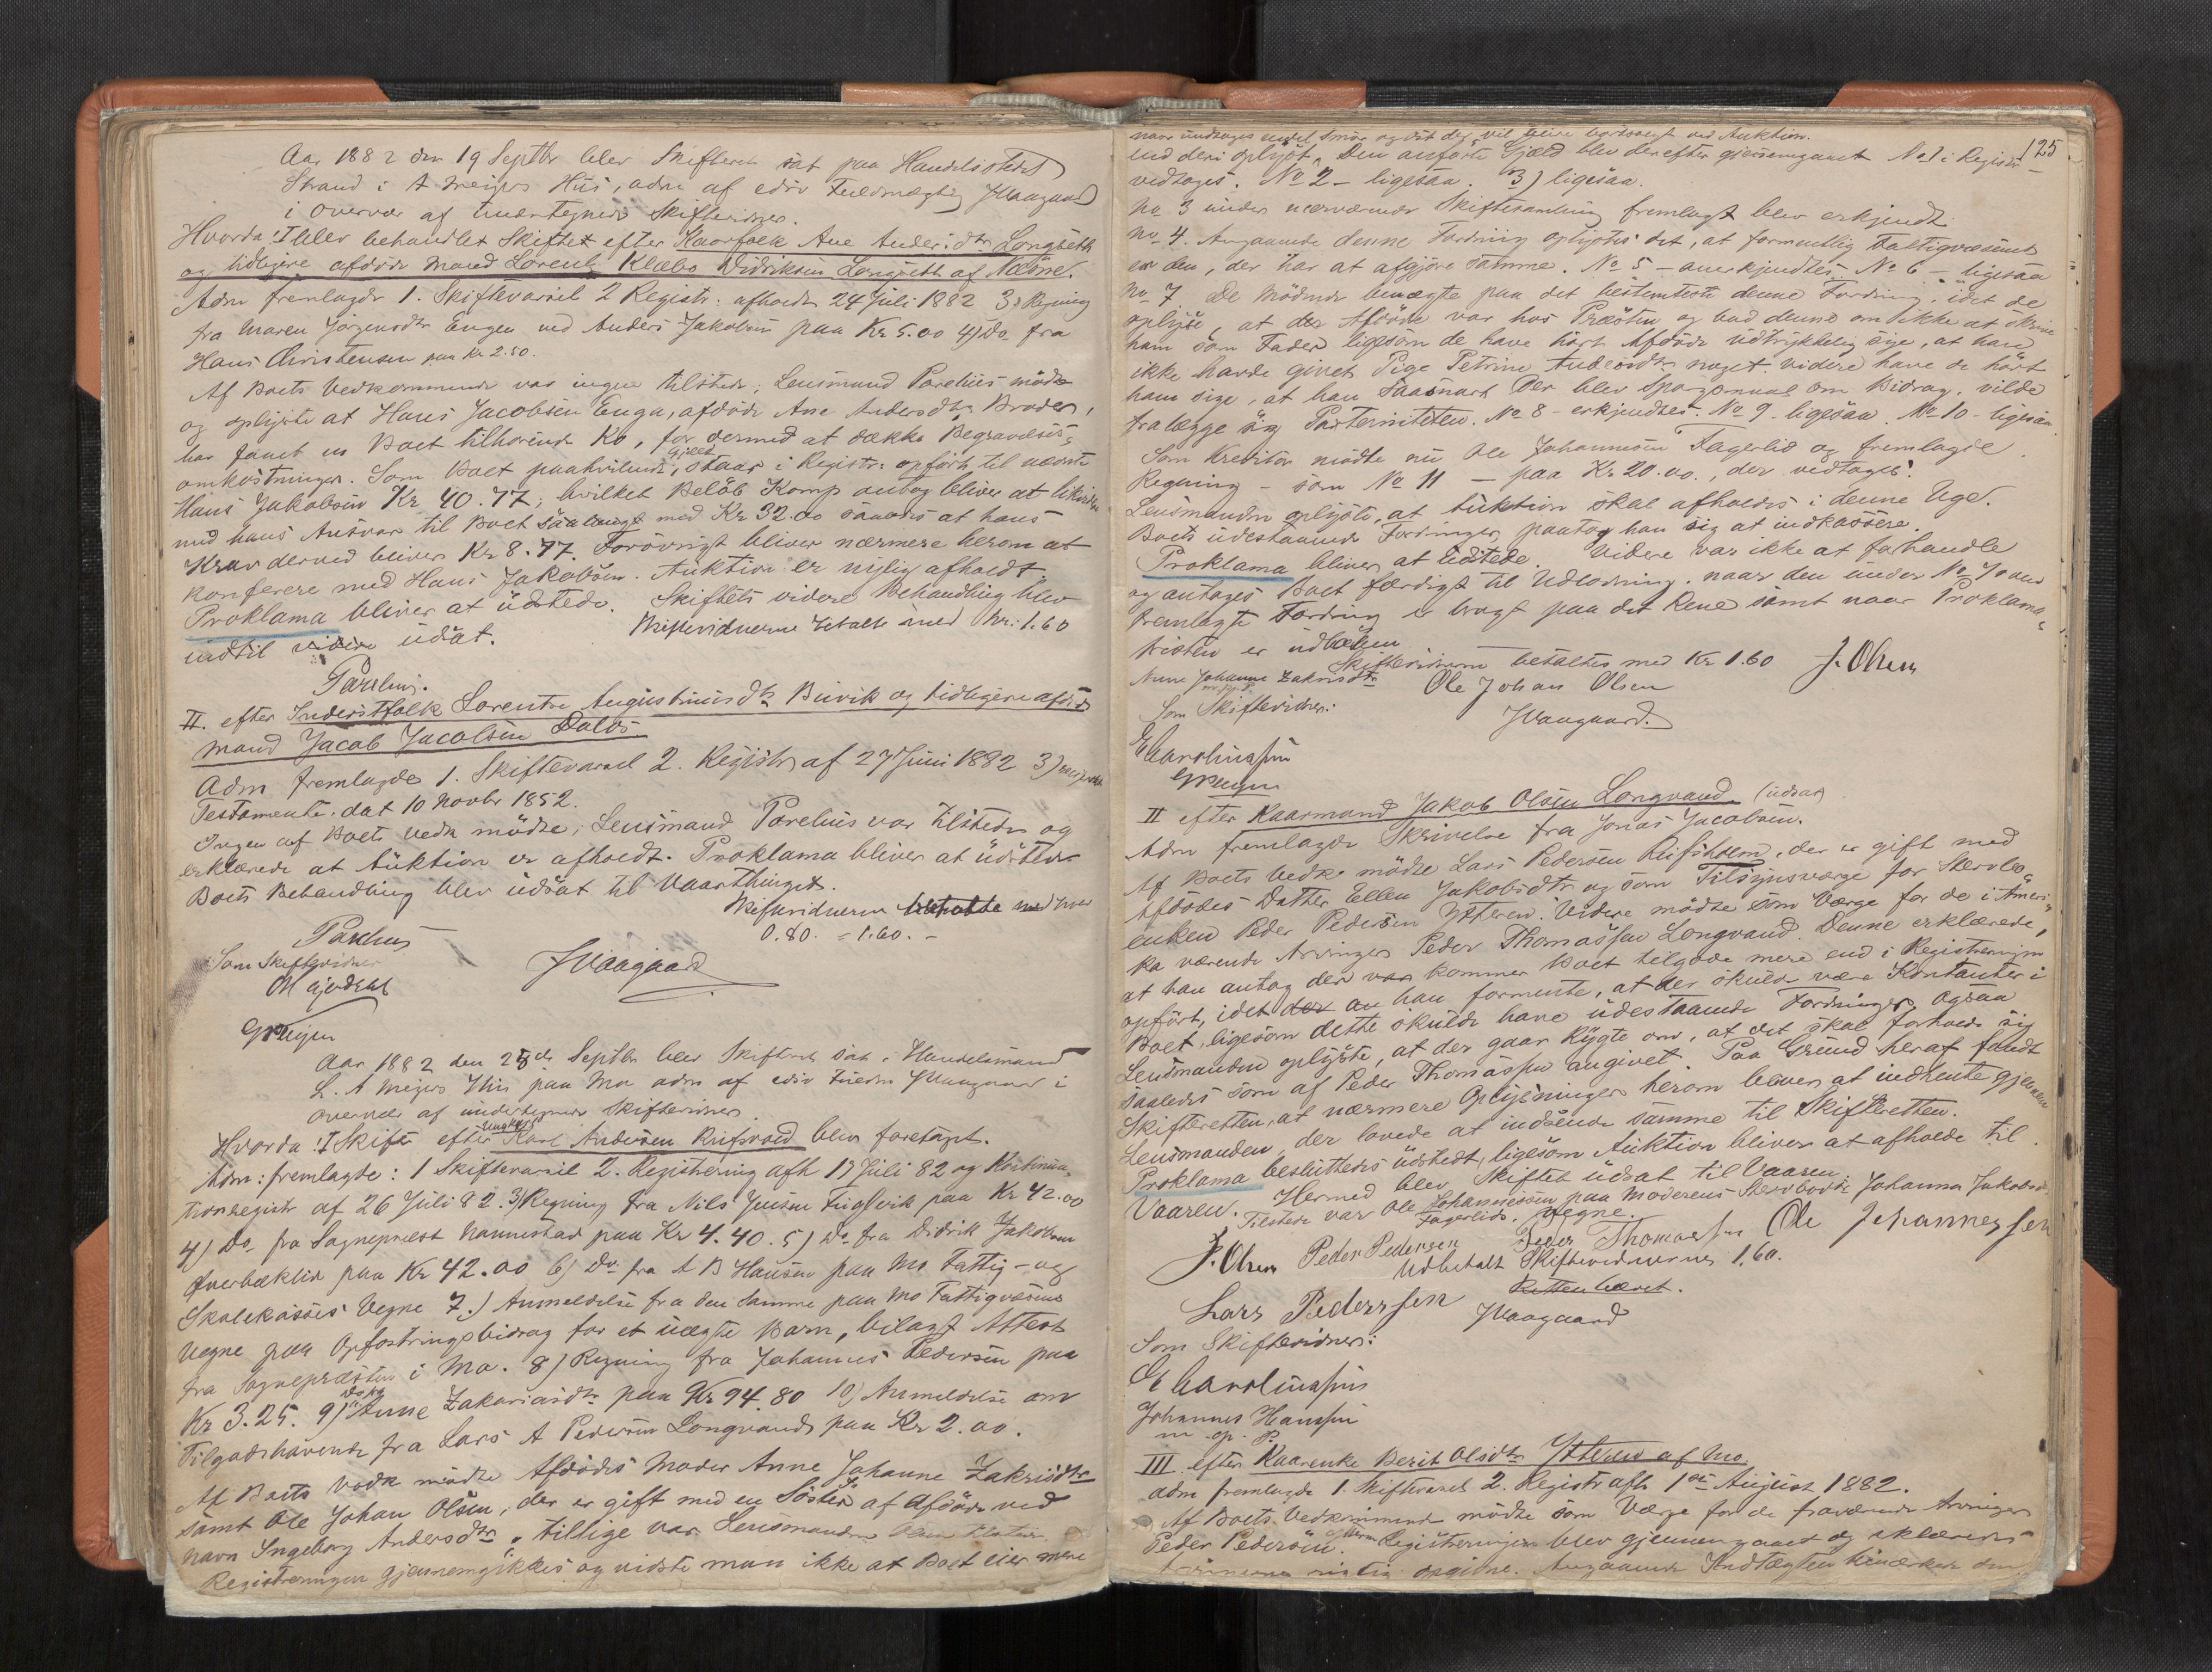 Aar 1882 den 19 Septbr blev Skifteret sat paa Handelsstedet
Strand i A Meyers Hus, adm af edsv Fuldmægtig JWaagaard
i Overvær af undertegnede Skiftevidner.
Hvorda: I blev behandlet Skiftet efter Kaarfolk Ane Anders.dtr Langseth
og tidligere afdøde Mand Lorentz Klæbo Didriksen Langseth af Næsne.
Adm fremlagde 1. Skiftevarsel 2 Registr: afholdt 24 Juli 1882 3) Regning
fra Maren Jørgensdtr Engen ved Anders Jakobsen paa Kr 5.00 4) Do fra
Hans Christensen paa Kr 2.50.
Af Boets Vedkommende var ingen tilstede; Lensmand Parelius mødte
og oplyste at Hans Jacobsen Enga, afdøde Ane Andersdtr Broder,
har faaet en Boet tilhørende Ko, for dermed at dække Begravelses-
omkostninger. Som Boet paahvilende Gjæld, staar i Registr: opført til nævnte
Hans Jakobsen Kr 40.77; hvilket Beløb Komp antog bliver at likvidere
med hans Ansvar til Boet saalangt med Kr 32.00 saaledes at hans
Krav derved bliver Kr 8.77. Forøvrigt bliver nærmere herom at
konferere med Hans Jakobsen. Auktion er nylig afholdt
Proklama bliver at udstede. Skiftets videre Behandling blev
indtil videre udsat. Skiftevidnerne betalte med Kr: 1.60
Parelius.
II. efter Inderstfolk Lorentze Augustinusdtr Buvik og tidligere afdøde
Mand Jacob Jacobsen Dalos
Adm fremlagde 1. Skiftevarsel 2. Registr af 27 Juni 1882 3)
Testamente dat 10 Novbr 1852.
Ingen af Boets Vedk mødte; Lensmand Parelius var tilstede og
erklærede at Auktion er afholdt. Proklama bliver at udstede
Boets Behandling blev udsat til Vaarthinget.
Skiftevidnerne betalte med hver
0.80. = 1.60. -
Parelius
Som Skiftevidner JWaagaard
Aar 1882 den 25de Septbr blev Skifteret sat i Handelsmand
L. A Meyers Hus paa Mo adm af edsv Fuldm JWaagaard i
Overvær af undertegnede Skiftevidner.
Hvorda: I Skifte efter Ungkarl Karl Andersen blev foretaget.
Adm: fremlagte: 1 Skiftevarsel 2. Registrering afh 17 Juli 82 og Kontinua-
tionregistr af 26 Juli 82. 3) Regning fra Nils Jensen paa Kr 42.00
4) Do fra Sognepræst Nannestad paa Kr 4.40. 5) Do fra Didrik Jakobsen
Tverbæklid paa Kr 42.00 6) Do fra A B Hansen paa Mo Fattig- og
Skolekasses Vegne 7.) Anmeldelse fra den Samme paa Mo Fattigvæsens
Vegne paa Opfostringsbidrag for et uægte Barn, bilagt Attest
fra Sognepræsten i Mo. 8) Regning fra Johannes Pedersen paa
Kr 3.25. 9) Anne Zakariasdtr paa Kr 94.80 10) Anmeldelse om
Tilgodehavende fra Lars A Pedersen Langvand paa Kr 2.00.
Af Boets Vedk mødte Afdødes Moder Anne Johanne Zakrisdtr
samt Ole Johan Olsen, der er gift med en Søster af Afdøde ved
Navn Ingeborg Andersdtr. Tillige var Lensmanden
Registreringen gjennemgikkes og vidste man ikke at Boet eier mere
125
naar undtages endel Smør og Ost der vil blive bortsolgt ved Auktion.
end deri oplyst. Den anførte Gjæld blev derefter gjennemgaaet No 1 i Registr
vedtages. No 2 - ligesaa. 3) ligesaa.
No 3 under nærværende Skiftesamling fremlagt blev erkjendt
No 4. Angaaende denne Fordring oplystes det, at formentlig Fattigvæsenet
er den, der har at afgjøre samme. No 5 - anerkjendtes No 6 - ligesaa
No 7. De Mødende benægte paa det bestemteste denne Fordring, idet de
oplyse, at der Afdøde var hos Præsten og bad denne om ikke at skrive
ham som Fader ligesom de have hørt Afdøde udtrykkelig sige, at han
ikke havde givet Pige Petrine Andersdtr noget. videre have de hørt
ham sige, at han saasnart der blev Spørgsmaal om Bidrag, vilde
fralægge sig Paterniteten. No 8 - erkjendtes. No 9 - ligesaa. No 10 - ligesaa.
Som Kreditor mødte nu Ole Johannesen Fagerlid og fremlagde
Regning - som No 11 - paa Kr 20.00., der vedtages.
Lensmanden oplyste, at Auktion skal afholdes i denne Uge.
Boets udestaaende Fordringer paatog han sig at indkassere.
Proklama bliver at udstede. Videre var ikke at forhandle
og antages Boet færdigt til Udlodning. naar den under No 7 oven
fremlagte Fordring er bragt paa det Rene samt naar Proklama-
fristen er udløben
Skiftevidnerne betaltes med Kr 1.60 J. Olsen
Anne Johanne Zakrisdtr Ole Johan Olsen
m.p.P.
Som Skiftevidner: JWaagaard.
E Carolinussen
II efter Kaarmand Jakob Olsen Langvand (udsat)
Adm fremlagde Skrivelse fra Jonas Jacobsen.
Af Boets Vedk: mødte Lars Pedersen, der er gift med
Afdødes Datter Ellen Jakobsdtr og som Tilsynsværge for Stervbo-
enken Peder Pedersen Ytteren. Videre mødte som Værge for de i Ameri-
ka værende Arvinger Peder Thomassen Langvand. Denne erklærede,
at han antog der var kommer Boet tilgode mere end i Registreringen
opført, idet der an han formente, at der skulde være Kontanter i
Boet, ligesom dette skulde have udestaaende Fordringer. Ogsaa
Lensmanden oplyste, at der gaar Rygte om, at det skal forholde sig
saaledes som af Peder Thomassen angivet. Paa Grund heraf fandt
Skifteretten, at nærmere Oplysninger herom bliver at indhente gjennem
Lensmanden, der lovede at indsende samme til Skifteretten.
Proklama besluttedes udstedt, ligesom Auktion bliver at afholde til
Vaaren. Hermed blev Skiftet udsat til Vaaren.
Tilstede var Ole Johannessen Fagerlid, paa Moderens Stervbo Johanna Jakobsd
Vegne.
J. Olsen Peder Pedersen Peder Thomassen Ole Johannessen
Udbetalt Skiftevidnerne 1.60.
Retten hævet.
Lars Pederssen JWaagaard
Som Skiftevidner:
E Carolinussen
Johannes Hanssen
m. p. P.
III efter Kaarenke Berit Olsdtr Ytteren af Mo.
Adm fremlagde 1. Skiftevarsel 2. Registr afh 1ste August 1882.
Af Boets Vedkommende mødte som Værge for de fraværende Arvinger
Peder Pedersen. Registreringen blev gjennemgaaet og erklæredes
rigtig Angaaende Indtægten